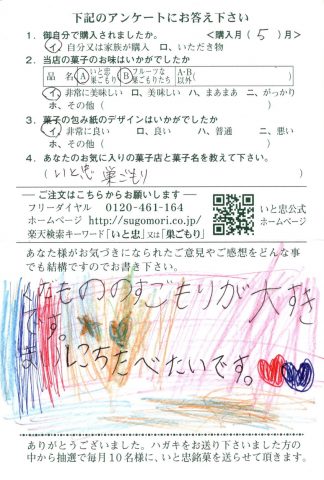 下記のアンケートにお答え下さい
1. 御自分で購入されましたか。 <購入月( 5 )月>
イ、自分又は家族が購入 ロ、いただき物
2. 当店の菓子のお味はいかがでしたか
品 名 A いと忠巣ごもり B フルーツな巣ごもりたち A・B以外( )
イ、非常に美味しい ロ、美味しい ハ、まあまあ ニ、がっかり
ホ、その他( )
3. 菓子の包み紙のデザインはいかがでしたか
イ、非常に良い ロ、良い ハ、普通 ニ、悪い
ホ、その他( )
4. あなたのお気に入りの菓子店と菓子名を教えて下さい。
( いと忠 巣ごもり )
ご注文はこちらからお願いします
フリーダイヤル 0120-461-164
ホームページ http://sugomori.co.jp/
楽天検索キーワード「いと忠」又は「巣ごもり」
いと忠公式
ホームページ
あなた様がお気づきになられたご意見やご感想をどんな事
でも結構ですのでお書き下さい。
くだもののすごもりが大すき
です。
またべたいです。
ありがとうございました。ハガキをお送り下さいました方の
中から抽選で毎月10名様に、いと忠銘菓を送らせて頂きます。